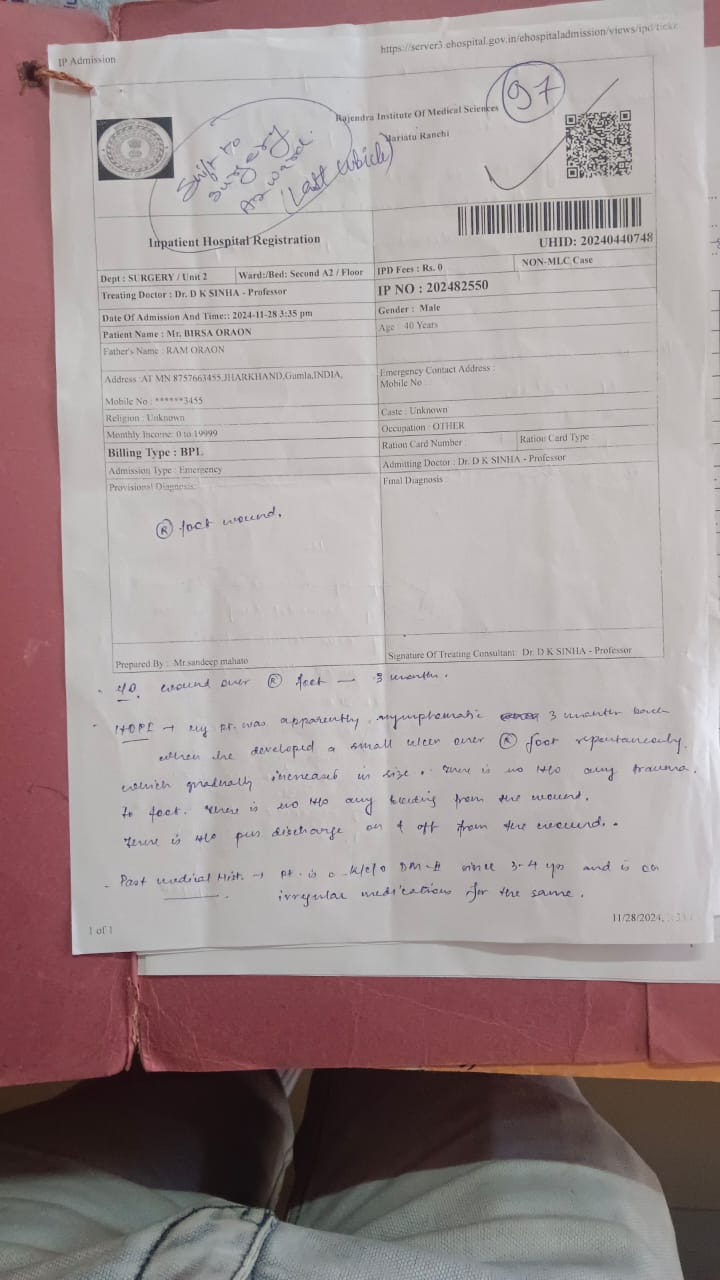 IP Admission
https://server3.ehospital.gov.in/ehospitaladmission/views/ipd/
97
Rajendra Institute Of Medical Sciences
Bariatu Ranchi
Shift to
surgery
A2 ward.
(Last cubicle)
Inpatient Hospital Registration
UHID: 20240440748
Dept : SURGERY / Unit 2
Ward:/Bed: Second A2 / Floor
IPD Fees : Rs. 0
NON-MLC Case
Treating Doctor : Dr. D K SINHA - Professor
IP NO : 202482550
Date Of Admission And Time:: 2024-11-28 3:35 pm
Gender : Male
Patient Name : Mr. BIRSA ORAON
Age : 40 Years
Father's Name : RAM ORAON
Address :AT MN 8757663455,JHARKHAND,Gumla,INDIA,
Emergency Contact Address :
Mobile No :
Mobile No : ******3455
Religion : Unknown
Caste : Unknown
Monthly Income: 0 to 19999
Occupation : OTHER
Billing Type : BPL
Ration Card Number
Ration Card Type
Admission Type : Emergency
Admitting Doctor : Dr. D K SINHA - Professor
Provisional Diagnosis:
Final Diagnosis
(R) foot wound.
Prepared By : Mr.sandeep mahato
Signature Of Treating Consultant: Dr. D K SINHA - Professor
wound over (R) foot — 3 months.
- HOPI → my pt. was apparently asymptomatic 3 months back
when he developed a small ulcer over (R) foot spontaneously.
which gradually increased in size. There is no H/o any trauma
to foot. There is no H/o any bleeding from the wound.
There is H/o pus discharge on & off from the wound.
- Past medical Hist. → pt. is a k/c/o DM-II since 3-4 yrs and is on
irregular medications for the same.
1 of 1
11/28/2024,